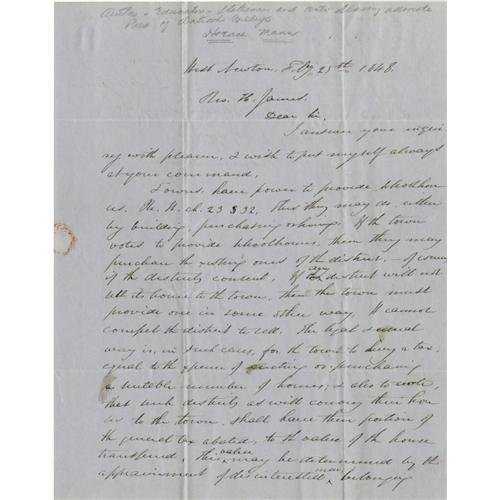 Author - Educator - Statesman and Anti Slavery advocate
Pres of Antioch College
Horace Mann
West Newton, Feby 25th 1848.
Rev. H. James,
Dear Sir,
I answer your inqui-
ry with pleasure, I wish to put myself always
at your command.
Towns have power to provide schoolhou
ses. R. S. ch. 23 § 32. This they may do, either
by building, purchasing or hiring. If the town
votes to provide schoolhouses, then they may
purchase the existing ones of the districts, - of course
if the districts consent. If any district will not
sell its house to the town, then the town must
provide one in some other way. It cannot
compel the district to sell. The legal & usual
way is, in such cases, for the town to levy a tax,
equal to the expense of erecting or purchasing
a suitable number of houses; & also to vote,
that such districts as will convey their hou
ses to the town, shall have their portion of
the general tax abated, to the value of the house
transferred. This value may be determined by the
appraisement of disinterested men, belonging